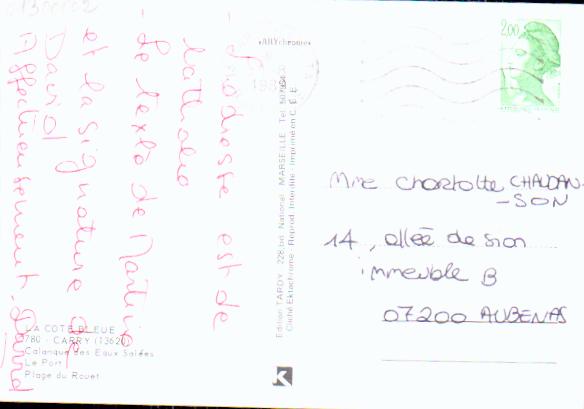 01300002
- L'adresse est de
Nathalie
- Le texte de Martine
et la signature de
David
Affectueusement. David
«ARYchrome»
2,00
Edition TARDY - 228, bd. National - MARSEILLE - Tél.
Cliché Ektachrome - Reprod. Interdite - Imprimé en C.E.E.
Mme Charlotte CHAUDAN-
-SON
14, allée de sion
immeuble B
07200 AUBENAS
LA COTE BLEUE
780 - CARRY (13620)
Calanque des Eaux Salées
Le Port
Plage du Rouet